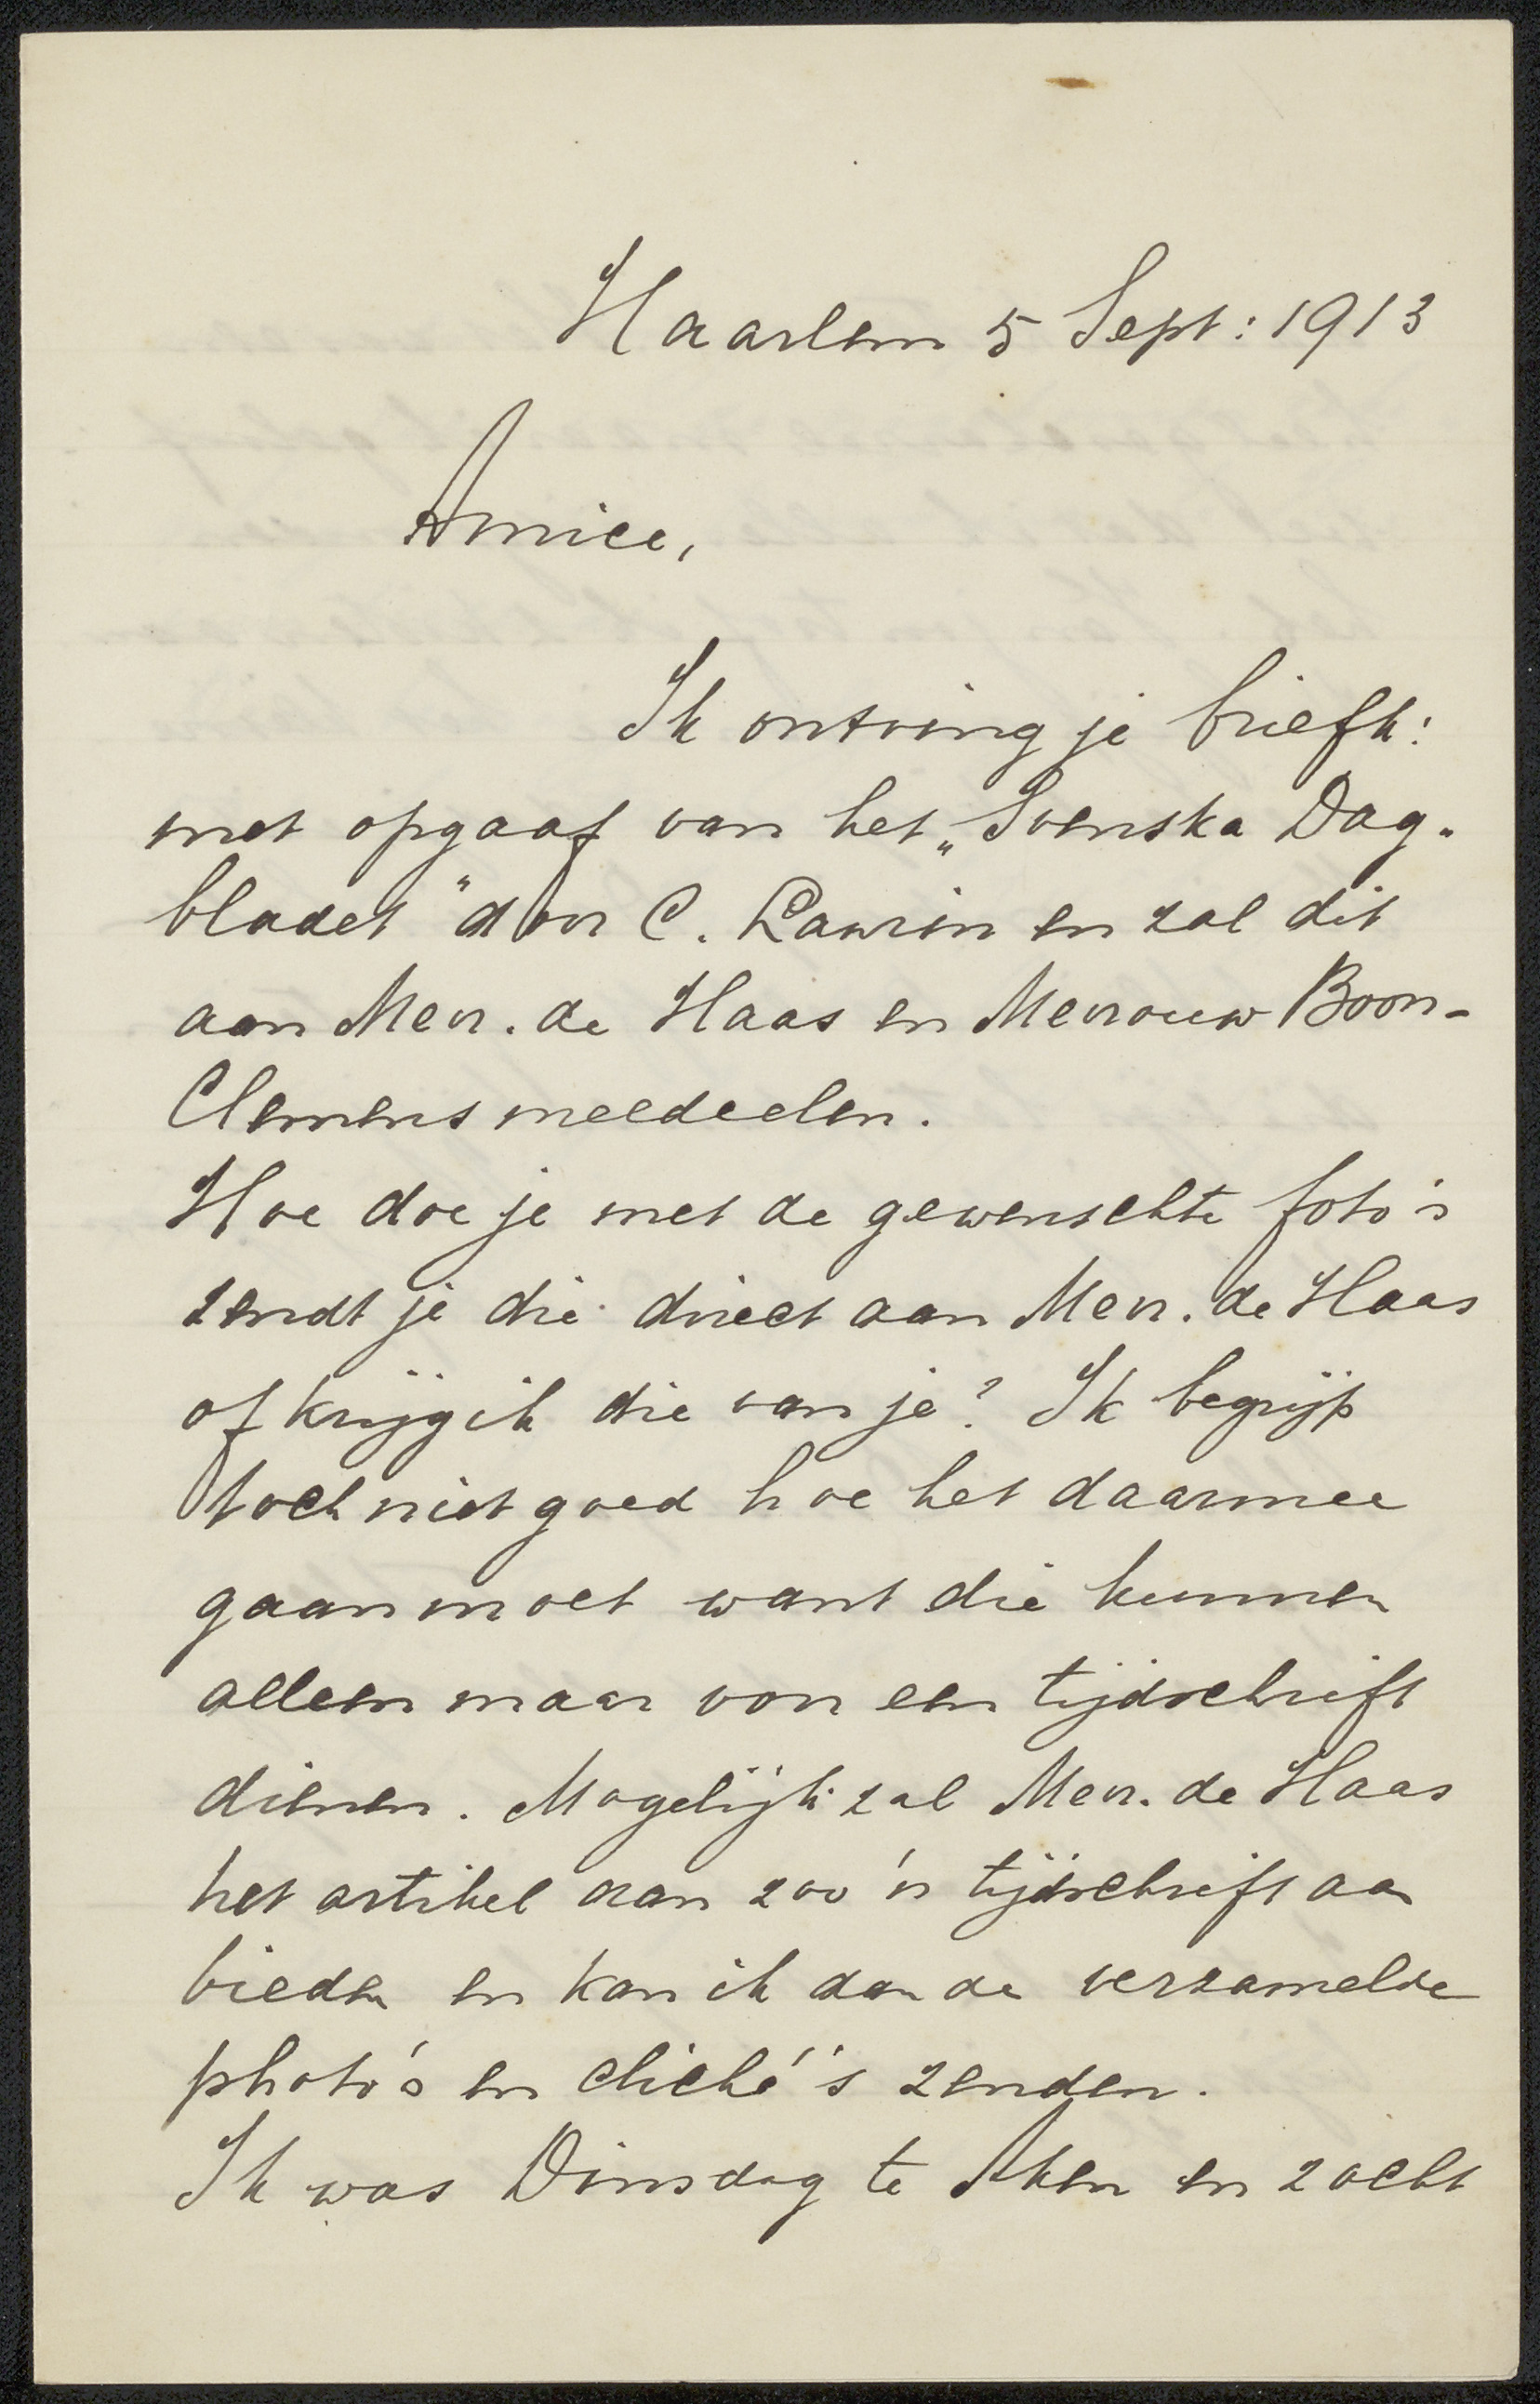 Haarlem 5 Sept: 1913
Amice,
Ik ontving je briefk:
met opgaaf van het „Svenska Dag-
bladet" door C. Laurin en zal dit
aan Mevr. de Haas en Mevrouw Boon-
Clemens meedeelen.
Hoe doe je met de gewenschte foto's
zendt je die direct aan Mevr. de Haas
of krijg ik die van je? Ik begrijp
toch niet goed hoe het daarmee
gaan moet want die kunnen
alleen maar voor een tijdschrift
dienen. Mogelijk zal Mevr. de Haas
het artikel aan zoo'n tijdschrift aan
bieden en kan ik dan de verzamelde
photo's en cliché's zenden.
Ik was Dinsdag te Aken en zocht